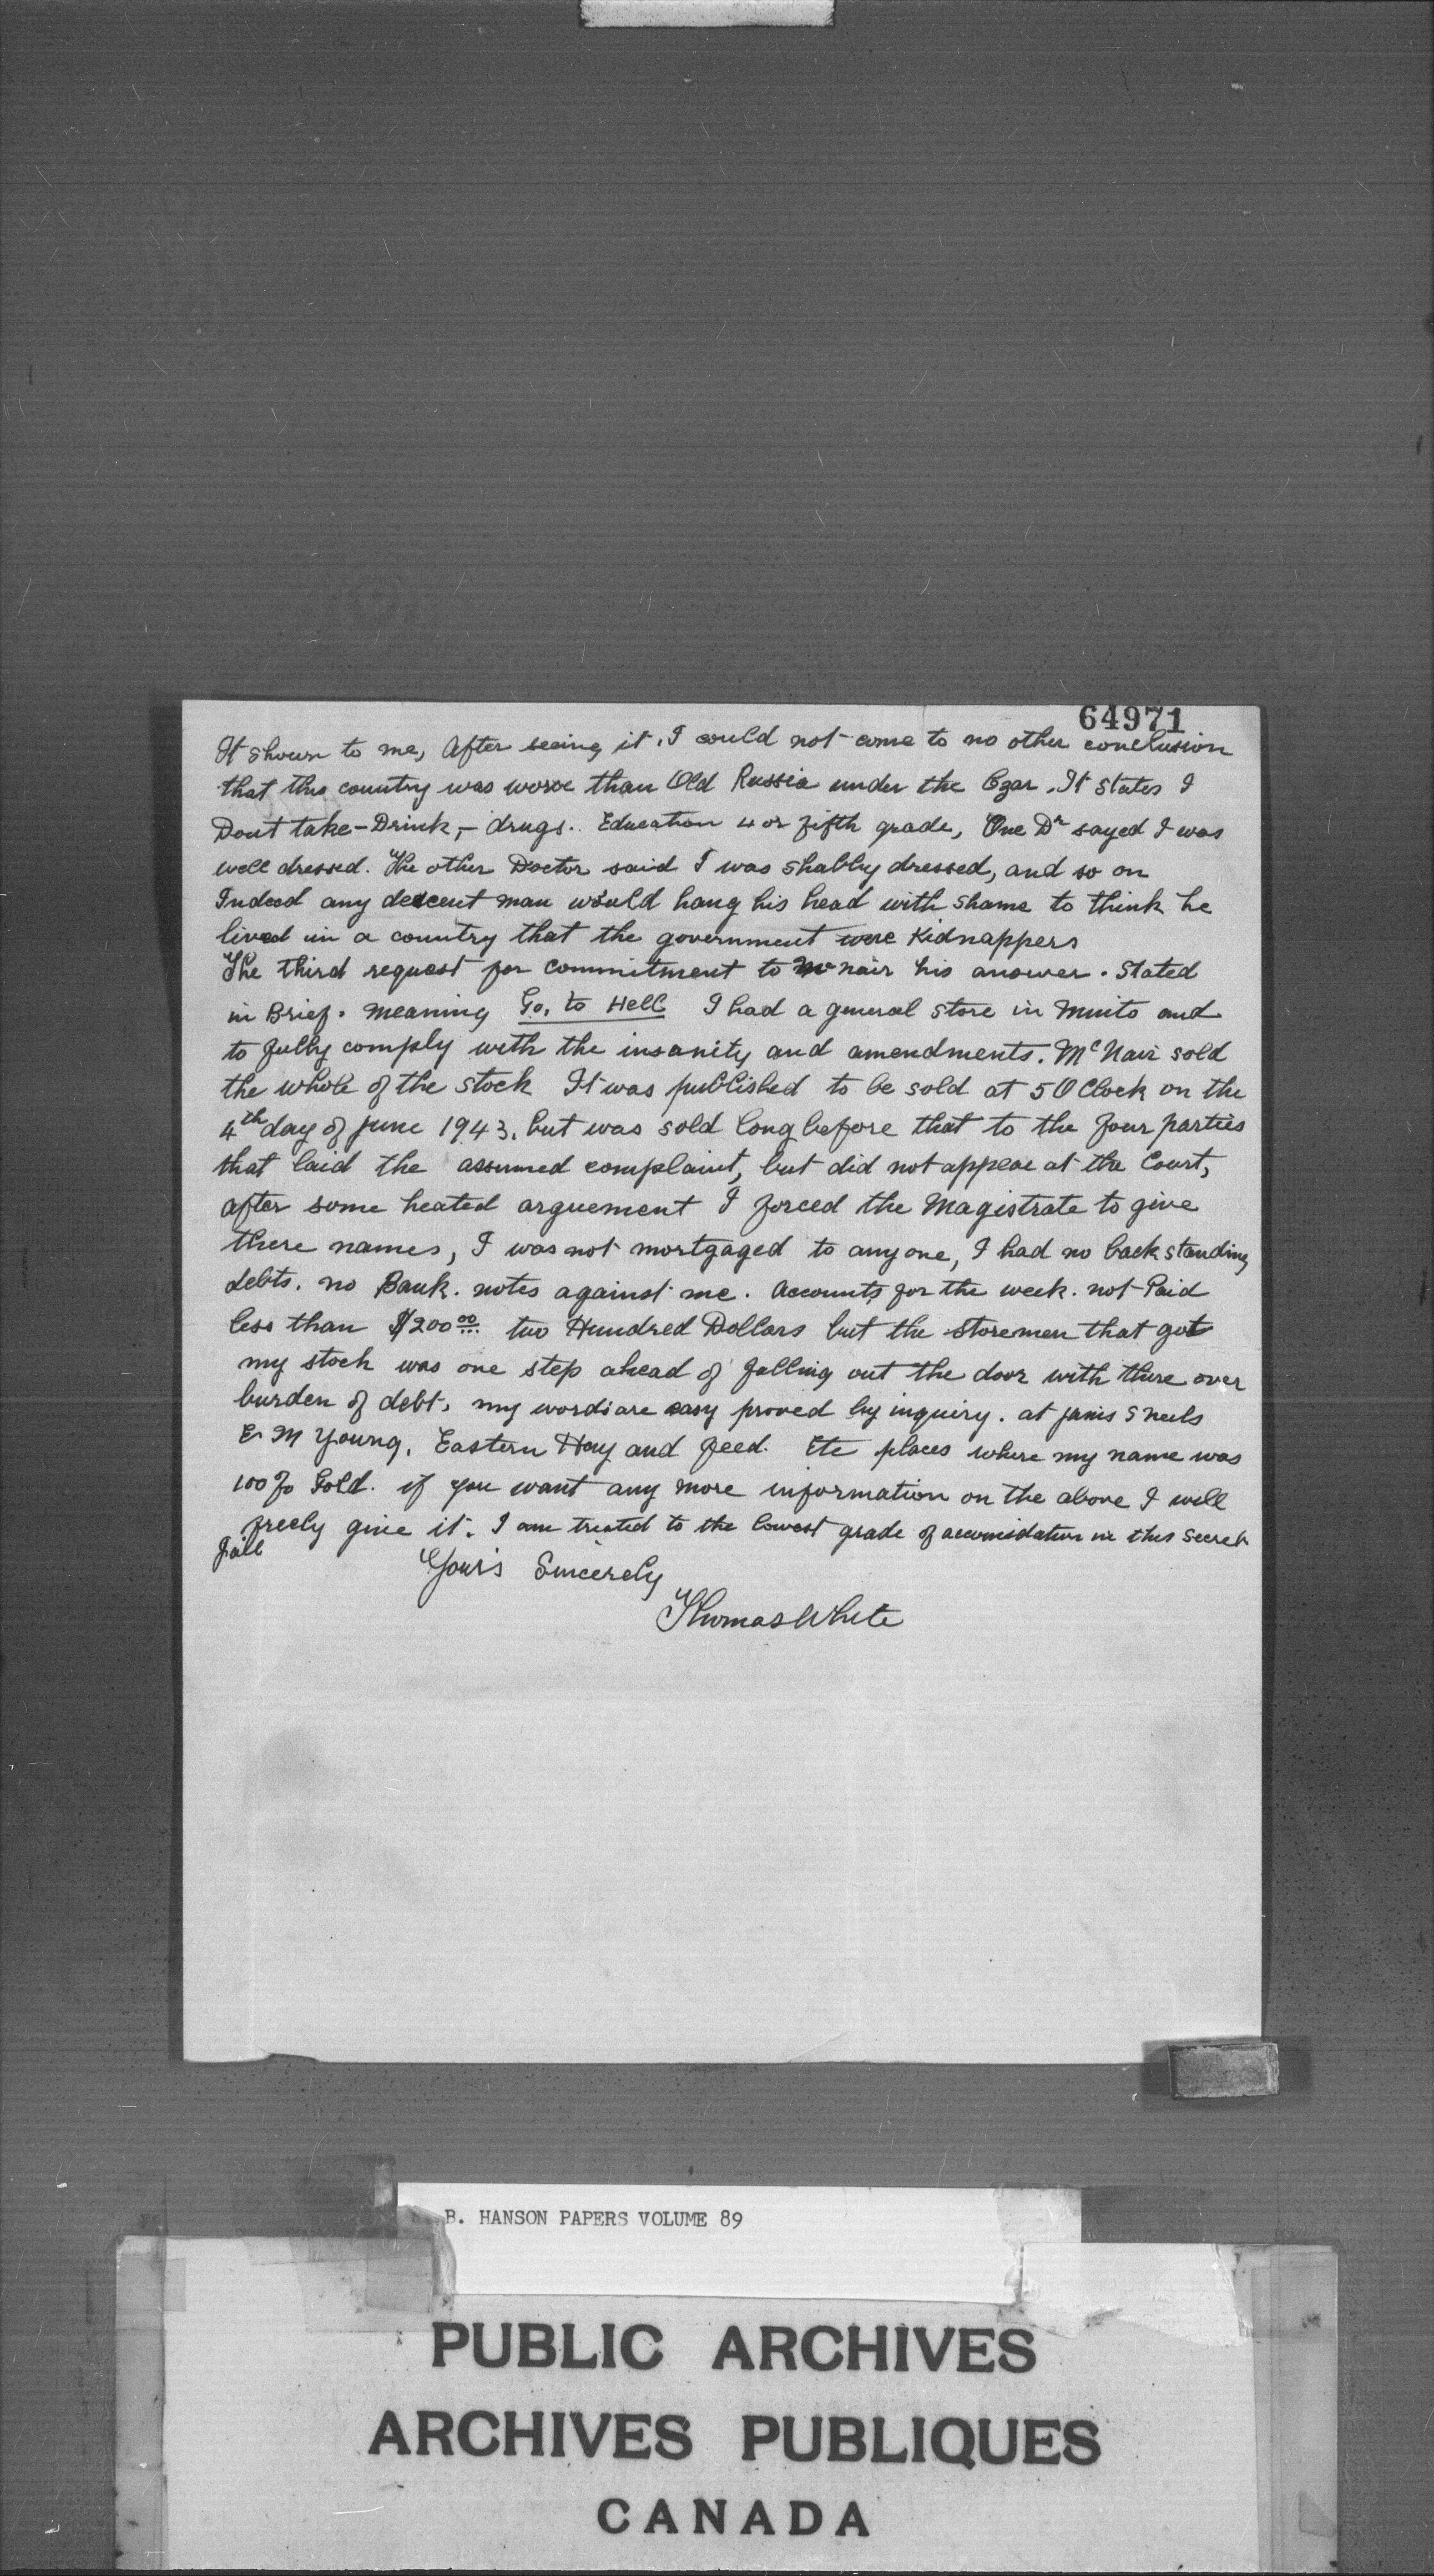 64971
It shown to me, After seeing it. I could not come to no other conclusion
that this country was worse than Old Russia under the Czar. It states I
Dont take - Drink, - drugs. Education 4 or fifth grade, One Dr sayed I was
well dressed. The other Doctor said I was shabby dressed, and so on
Indeed any descent man would hang his head with shame to think he
lived in a country that the government were Kidnappers
The third request for commitment to McNair his answer. Stated
in Brief. meaning Go, to Hell I had a general store in Minto and
to fully comply with the insanity and amendments. McNair sold
the whole of the stock It was published to be sold at 5 O Clock on the
4th day of June 1943. but was sold long before that to the four parties
that laid the assumed complaint, but did not appear at the Court,
after some heated arguement I forced the Magistrate to give
there names, I was not mortgaged to any one, I had no back standing
debts. no Bank. notes against me. Accounts for the week. not Paid
less than $200.00 two Hundred Dollars but the storemen that got
my stock was one step ahead of falling out the door with there over
burden of debt. my words are easy proved by inquiry. at
E M Young, Eastern Hay and feed. Etc places where my name was
100% Gold. if you want any more information on the above I will
freely give it. I am treated to the lowest grade of accomidation in this secret
Jail
Your's Sincerely
Thomas White
B. HANSON PAPERS VOLUME 89
PUBLIC ARCHIVES
ARCHIVES PUBLIQUES
CANADA